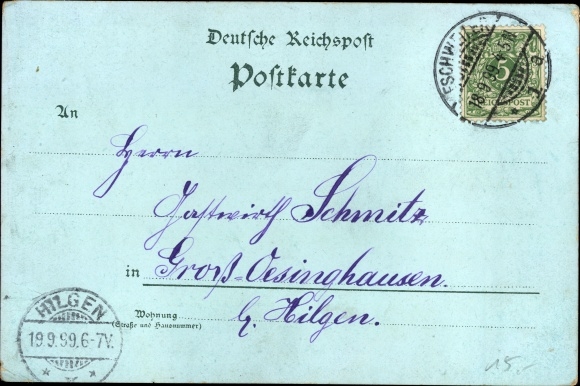 Deutsche Reichspost
Postkarte
ESCHWEILER
18.9.99.
1 a
5
REICHSPOST
An
Herrn
Gastwirth Schmitz
in Groß-Oesinghausen.
b/ Hilgen.
Wohnung
(Straße und Hausnummer)
HILGEN
19.9.99.6-7V.
15.-